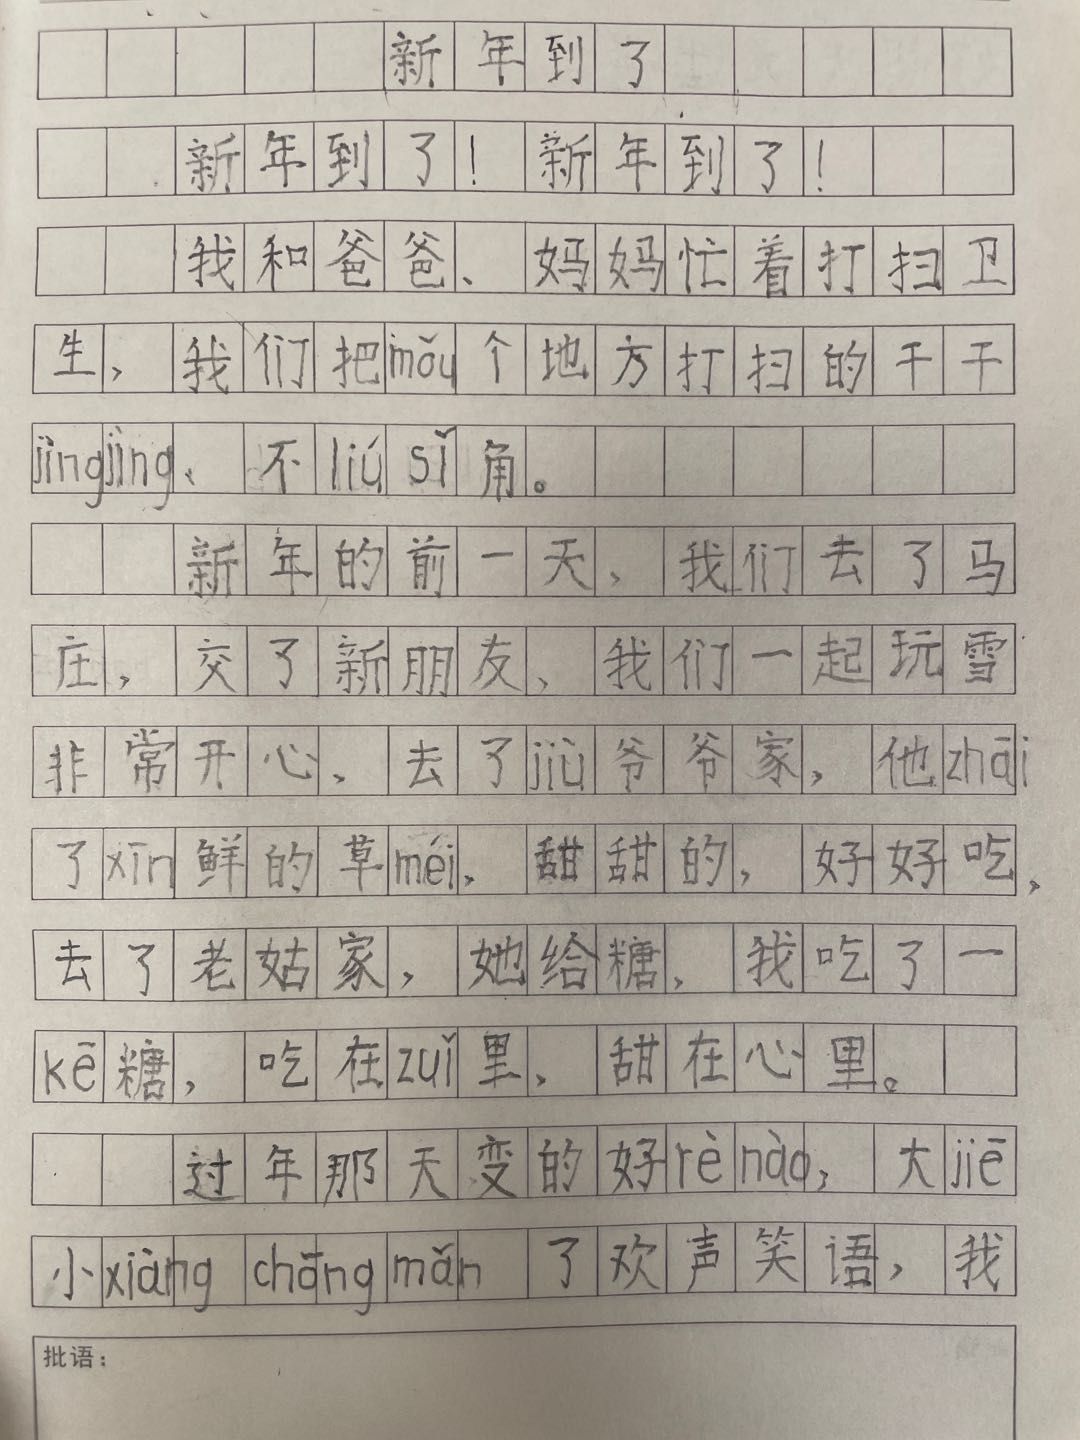 新年到了
新年到了！新年到了！
我和爸爸、妈妈忙着打扫卫
生，我们把mǒu个地方打扫的干干
jìngjìng、不liú sǐ角。
新年的前一天，我们去了马
庄，交了新朋友、我们一起玩雪
非常开心，去了jiù爷爷家，他zhāi
了xīn鲜的草méi，甜甜的，好好吃，
去了老姑家，她给糖，我吃了一
kē糖，吃在zuǐ里，甜在心里。
过年那天变的好rè nào，大jiē
小xiàng chōng mǎn了欢声笑语，我
批语：